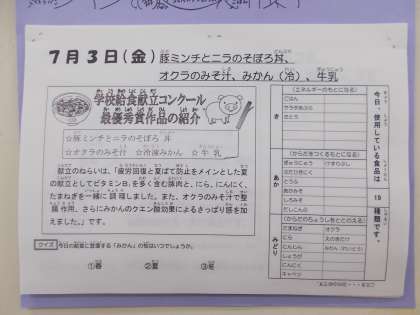 7月3日(金)豚ミンチとニラのそぼろ丼、
オクラのみそ汁、みかん(冷)、牛乳
学校給食献立コンクール
最優秀賞作品の紹介
☆豚ミンチとニラのそぼろ丼
☆オクラのみそ汁 ☆冷凍みかん ☆牛乳
献立のねらいは、「疲労回復と夏ばて防止をメインとした夏
の献立としてビタミンB₁を多く含む豚肉と、にら、にんにく、
たまねぎを一緒に調理しました。また、オクラのみそ汁で整
腸作用、さらにみかんのクエン酸効果によるきっぱり感を加
えました。」です。
クイズ 今日の給食に登場する「みかん」の旬はいつでしょうか。
①春 ②夏 ③冬
今日、使用している食品は 19 種類です。
き
(エネルギーのもとになる)
ごはん
さとう
あか
(からだをつくるもとになる)
ぎゅうにゅう
とうふ
あかみそ
しろみそ
みどり
(からだのちょうしをととのえる)
たまねぎ オクラ
にら
にんじん
しょうが
にんにく
キャベツ